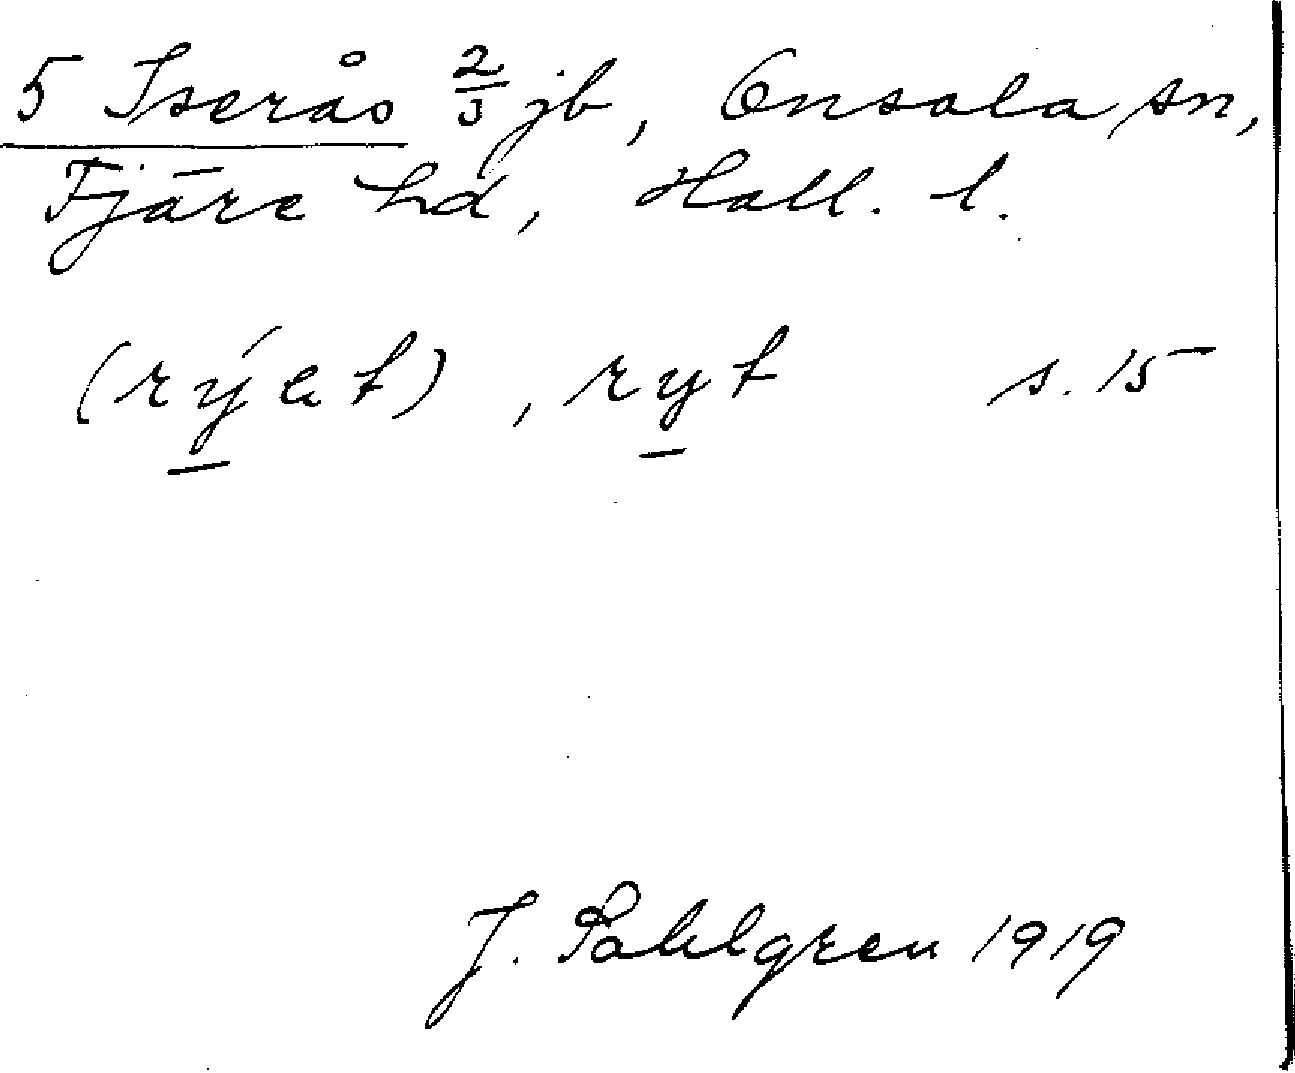 5 Iserås 2/3 jb, Onsala sn,
Fjäre hd, Hall. l.
(rýet), ryt s. 15
J. Sahlgren 1919